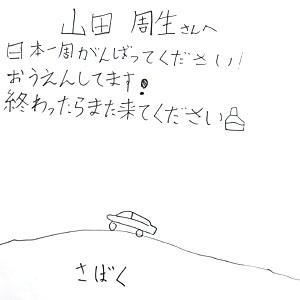 山田 周生さんへ
日本一周がんばってください!
おうえんしてます!
終わったらまた来てください
さばく